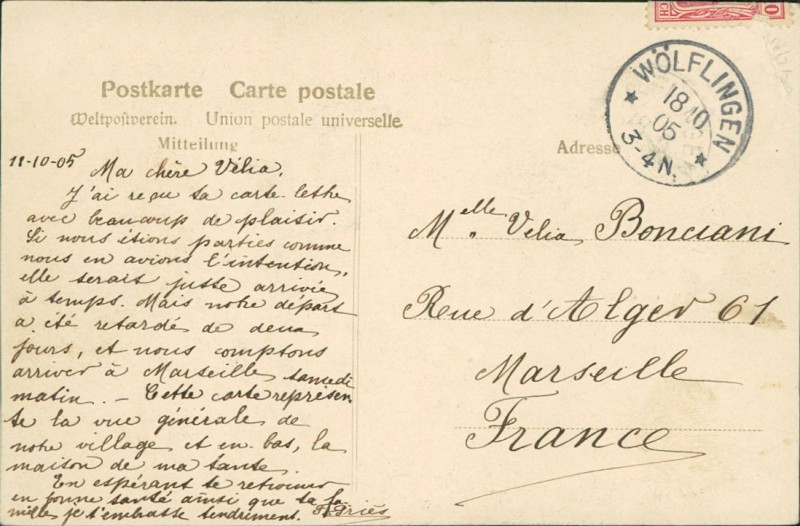 Postkarte Carte postale
Weltpostverein. Union postale universelle
Mitteilung
Adresse
WÖLFLINGEN
18 10
05
3-4N.
11-10-05
Ma chère Vélia,
J'ai reçu ta carte-lettre
avec beaucoup de plaisir.
Si nous étions parties comme
nous en avions l'intention,
elle serait juste arrivée
à temps. Mais notre départ
a été retardé de deux
jours, et nous comptons
arriver à Marseille samedi
matin. – Cette carte représen
te la vue générale de
notre village et en bas, la
maison de ma tante.
En espérant te retrouver
en bonne santé ainsi que ta fa
mille, je t'embrasse tendrement.
Melle Velia Bonciani
Rue d'Alger 61
Marseille
France